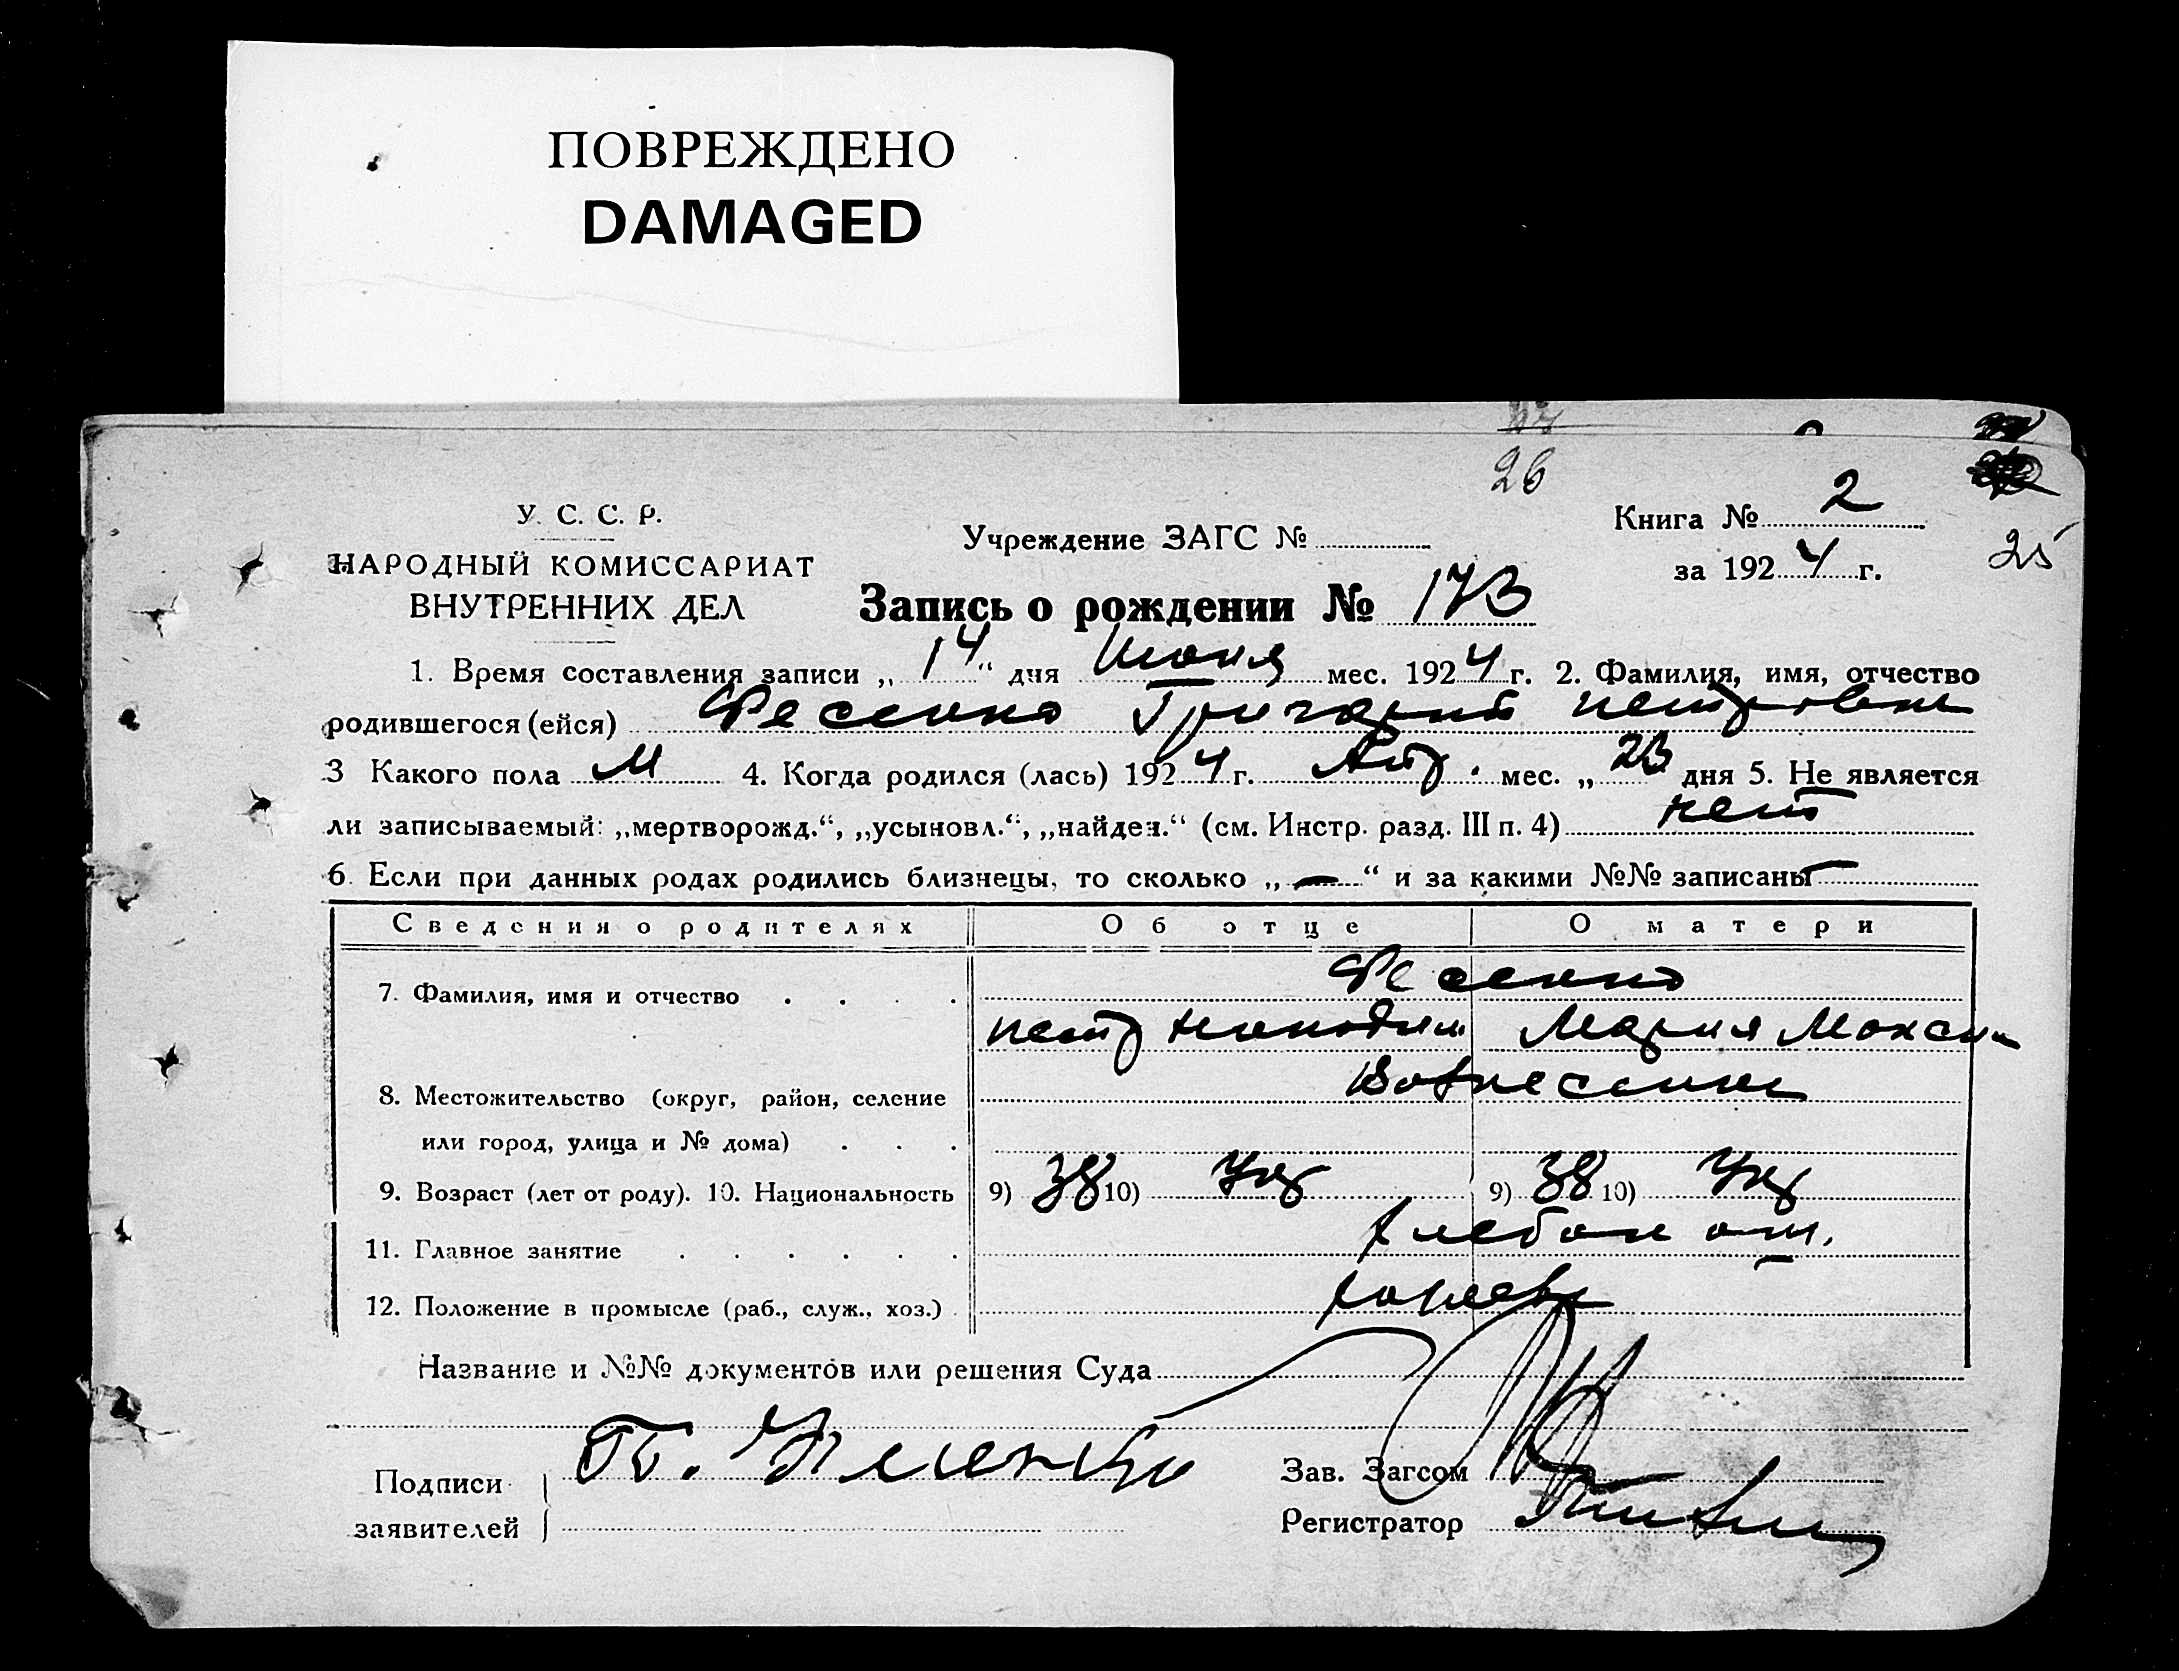 ПОВРЕЖДЕНО
DAMAGED
26
У. С. С. Р.
НАРОДНЫЙ КОМИССАРИАТ
ВНУТРЕННИХ ДЕЛ
Учреждение ЗАГС №
Книга № 2
за 1924 г.
25
Запись о рождении № 173
1. Время составления записи „ 14 “ дня Июня мес. 1924 г. 2. Фамилия, имя, отчество
родившегося (ейся) Фесенко Григорий Петрович
3 Какого пола М 4. Когда родился (лась) 1924 г. мес. „ 23 дня 5. Не является
ли записываемый: „мертворожд.“, „усыновл.“, „найден.“ (см. Инстр. разд. III п. 4) нет
6. Если при данных родах родились близнецы, то сколько „ — “ и за какими №№ записаны —
Сведения о родителях Об отце О матери
7. Фамилия, имя и отчество . . . . Фесенко
Петр Мария Максим
8. Местожительство (округ, район, селение Вознесенск
или город, улица и № дома) . . .
9. Возраст (лет от роду). 10. Национальность 9) 38 10) Укр 9) 38 10) Укр
11. Главное занятие . . . . . . Хлебопаш.
12. Положение в промысле (раб., служ., хоз.) . хозяева
Название и №№ документов или решения Суда
Подписи
заявителей
Зав. Загсом
Регистратор